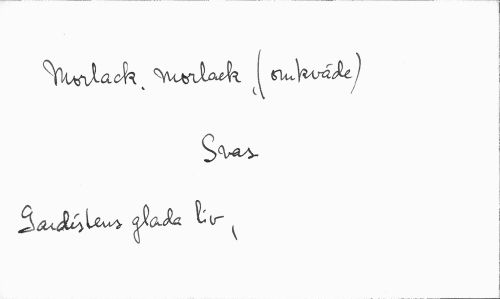 Morlack, morlack, (omkväde)
Svas
Gardistens glada liv,